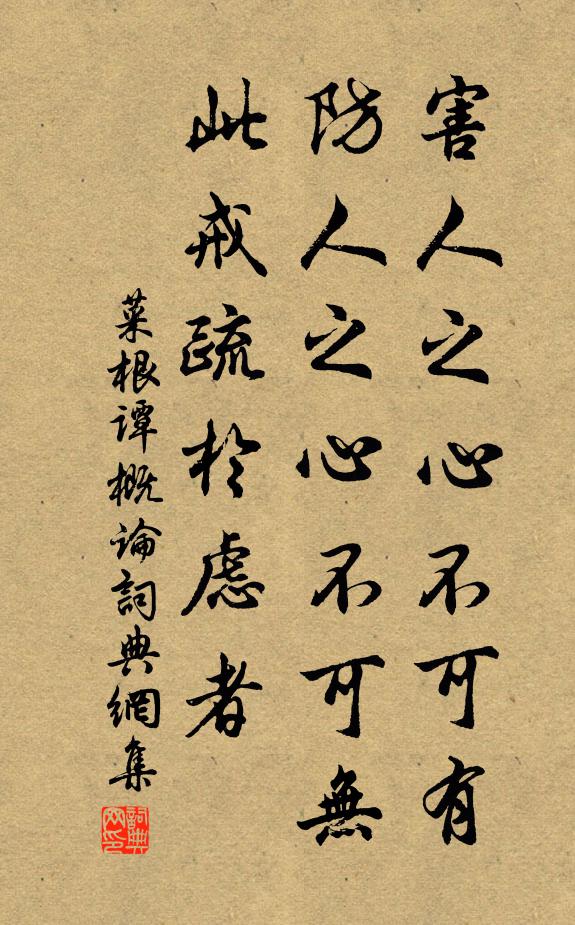 害人之心不可有
防人之心不可無
此戒疏於慮者
菜根谭概論詞典網集
詞典
网印